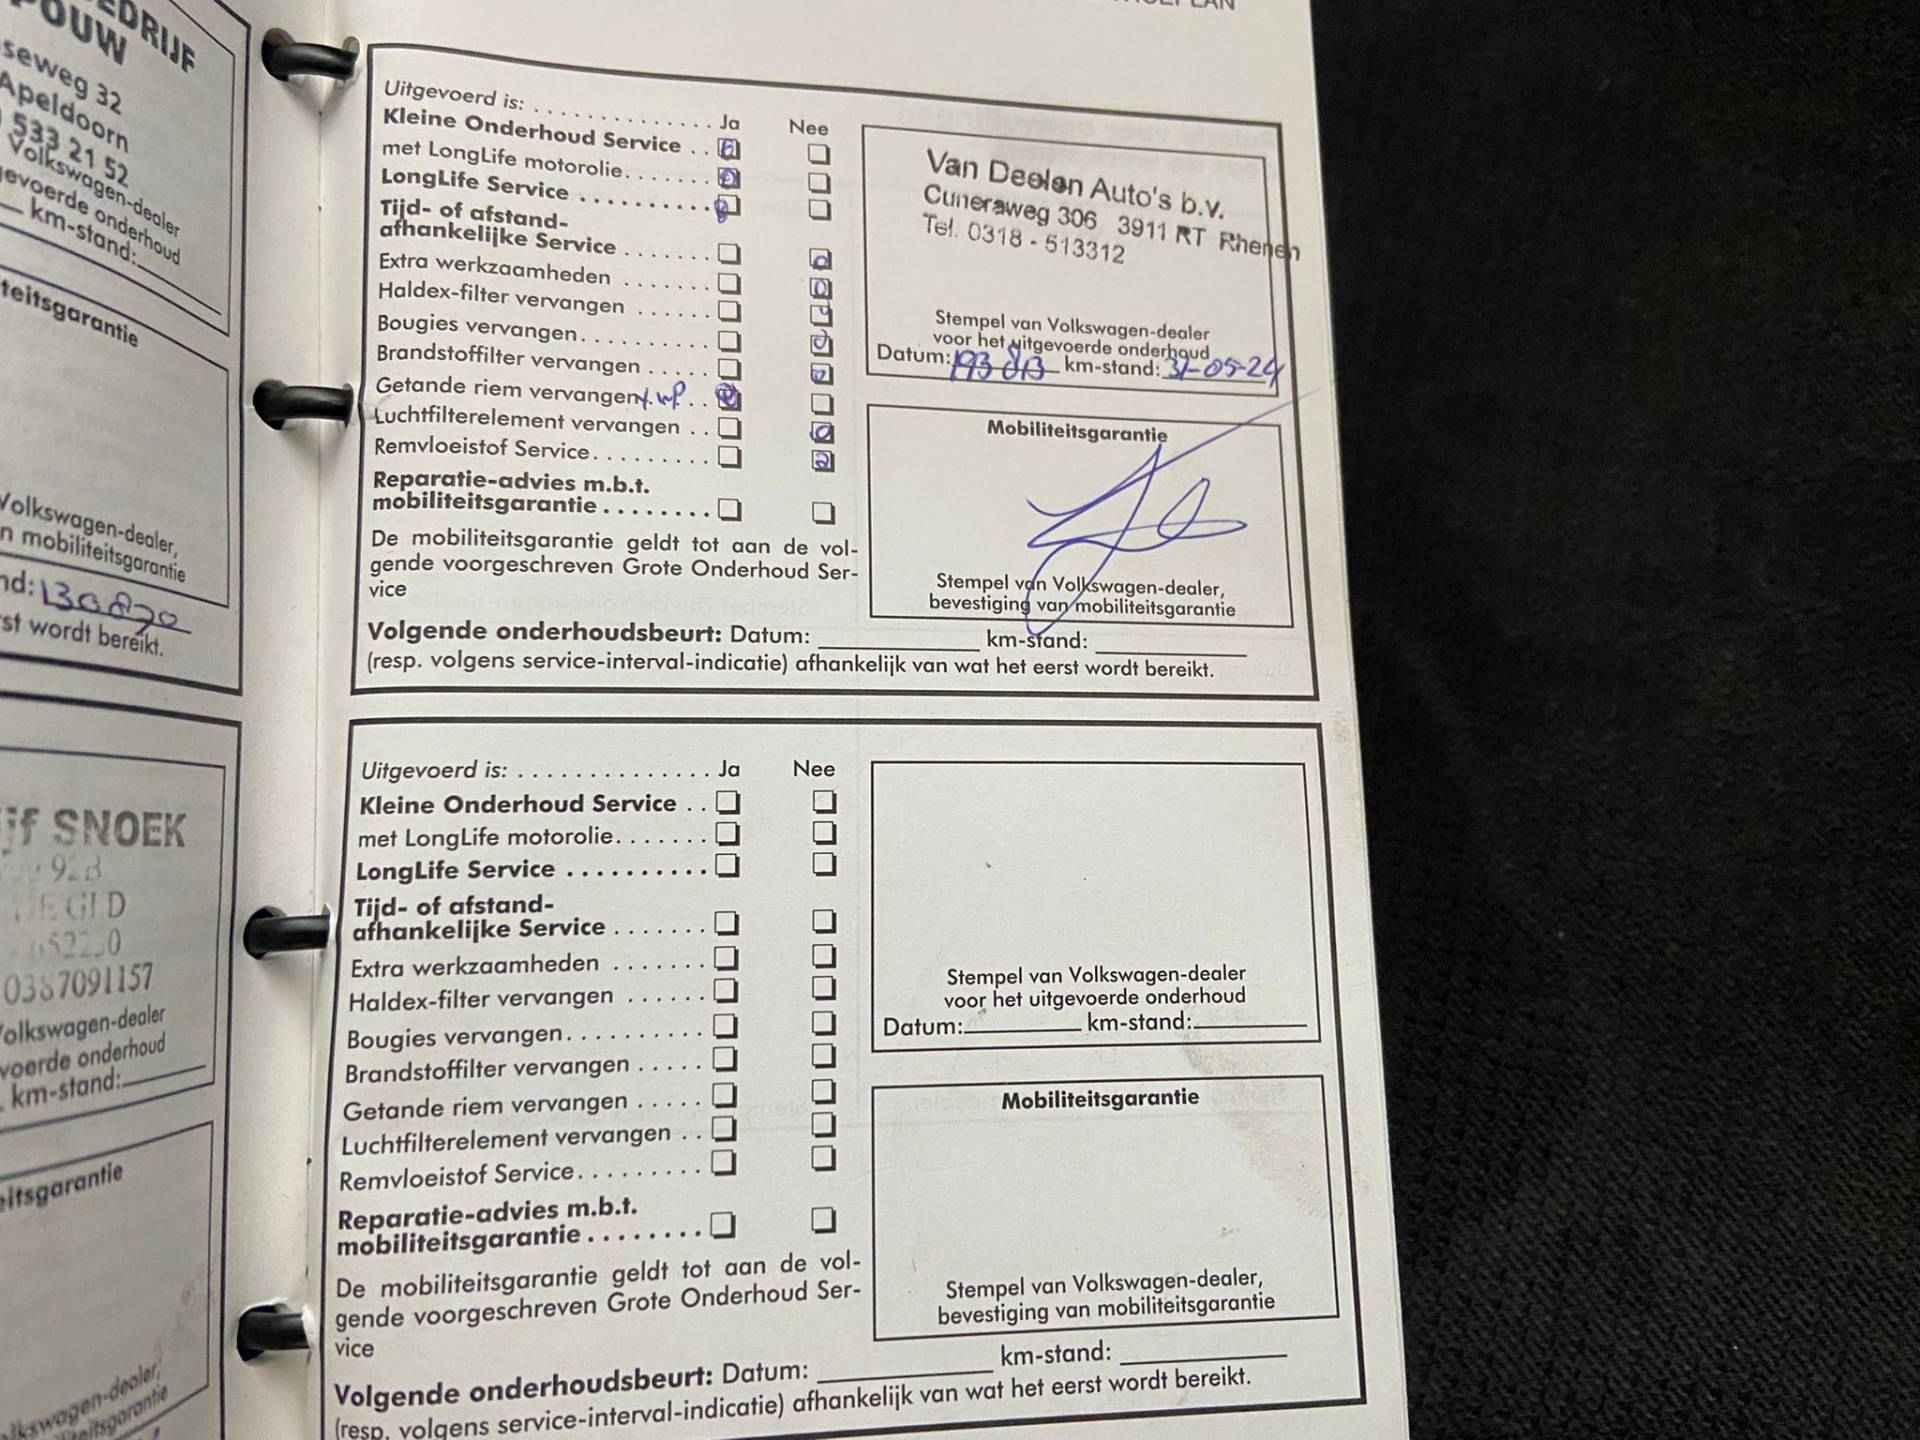 EDRIJF
OUW
seweg 32
Apeldoorn
533 21 52
Volkswagen-dealer
gevoerde onderhoud
km-stand:
teitsgarantie
Volkswagen-dealer,
n mobiliteitsgarantie
nd: 130870
rst wordt bereikt.
if SNOEK
92B
GLD
0387091157
Volkswagen-dealer
voerde onderhoud
km-stand:
eitsgarantie
lkswagen-dealer,
iteitsgarantie
Uitgevoerd is: . . . . . . . . . . . . . . Ja Nee
Kleine Onderhoud Service . .
met LongLife motorolie. . . . . . .
LongLife Service . . . . . . . . . .
Tijd- of afstand-
afhankelijke Service . . . . . . .
Extra werkzaamheden . . . . . . .
Haldex-filter vervangen . . . . . .
Bougies vervangen. . . . . . . . . .
Brandstoffilter vervangen . . . . .
Getande riem vervangen + wp. . .
Luchtfilterelement vervangen . .
Remvloeistof Service. . . . . . . . .
Reparatie-advies m.b.t.
mobiliteitsgarantie . . . . . . . .
De mobiliteitsgarantie geldt tot aan de vol-
gende voorgeschreven Grote Onderhoud Ser-
vice
Van Deelen Auto's b.v.
Cuneraweg 306 3911 RT Rhenen
Tel. 0318 - 513312
Stempel van Volkswagen-dealer
voor het uitgevoerde onderhoud
Datum: 193 813 km-stand: 31-05-24
Mobiliteitsgarantie
Stempel van Volkswagen-dealer,
bevestiging van mobiliteitsgarantie
Volgende onderhoudsbeurt: Datum: km-stand:
(resp. volgens service-interval-indicatie) afhankelijk van wat het eerst wordt bereikt.
Uitgevoerd is: . . . . . . . . . . . . . . Ja Nee
Kleine Onderhoud Service . .
met LongLife motorolie. . . . . . .
LongLife Service . . . . . . . . . .
Tijd- of afstand-
afhankelijke Service . . . . . . .
Extra werkzaamheden . . . . . . .
Haldex-filter vervangen . . . . . .
Bougies vervangen. . . . . . . . . .
Brandstoffilter vervangen . . . . .
Getande riem vervangen . . . . .
Luchtfilterelement vervangen . .
Remvloeistof Service. . . . . . . . .
Reparatie-advies m.b.t.
mobiliteitsgarantie . . . . . . . .
De mobiliteitsgarantie geldt tot aan de vol-
gende voorgeschreven Grote Onderhoud Ser-
vice
Stempel van Volkswagen-dealer
voor het uitgevoerde onderhoud
Datum: km-stand:
Mobiliteitsgarantie
Stempel van Volkswagen-dealer,
bevestiging van mobiliteitsgarantie
Volgende onderhoudsbeurt: Datum: km-stand:
(resp. volgens service-interval-indicatie) afhankelijk van wat het eerst wordt bereikt.